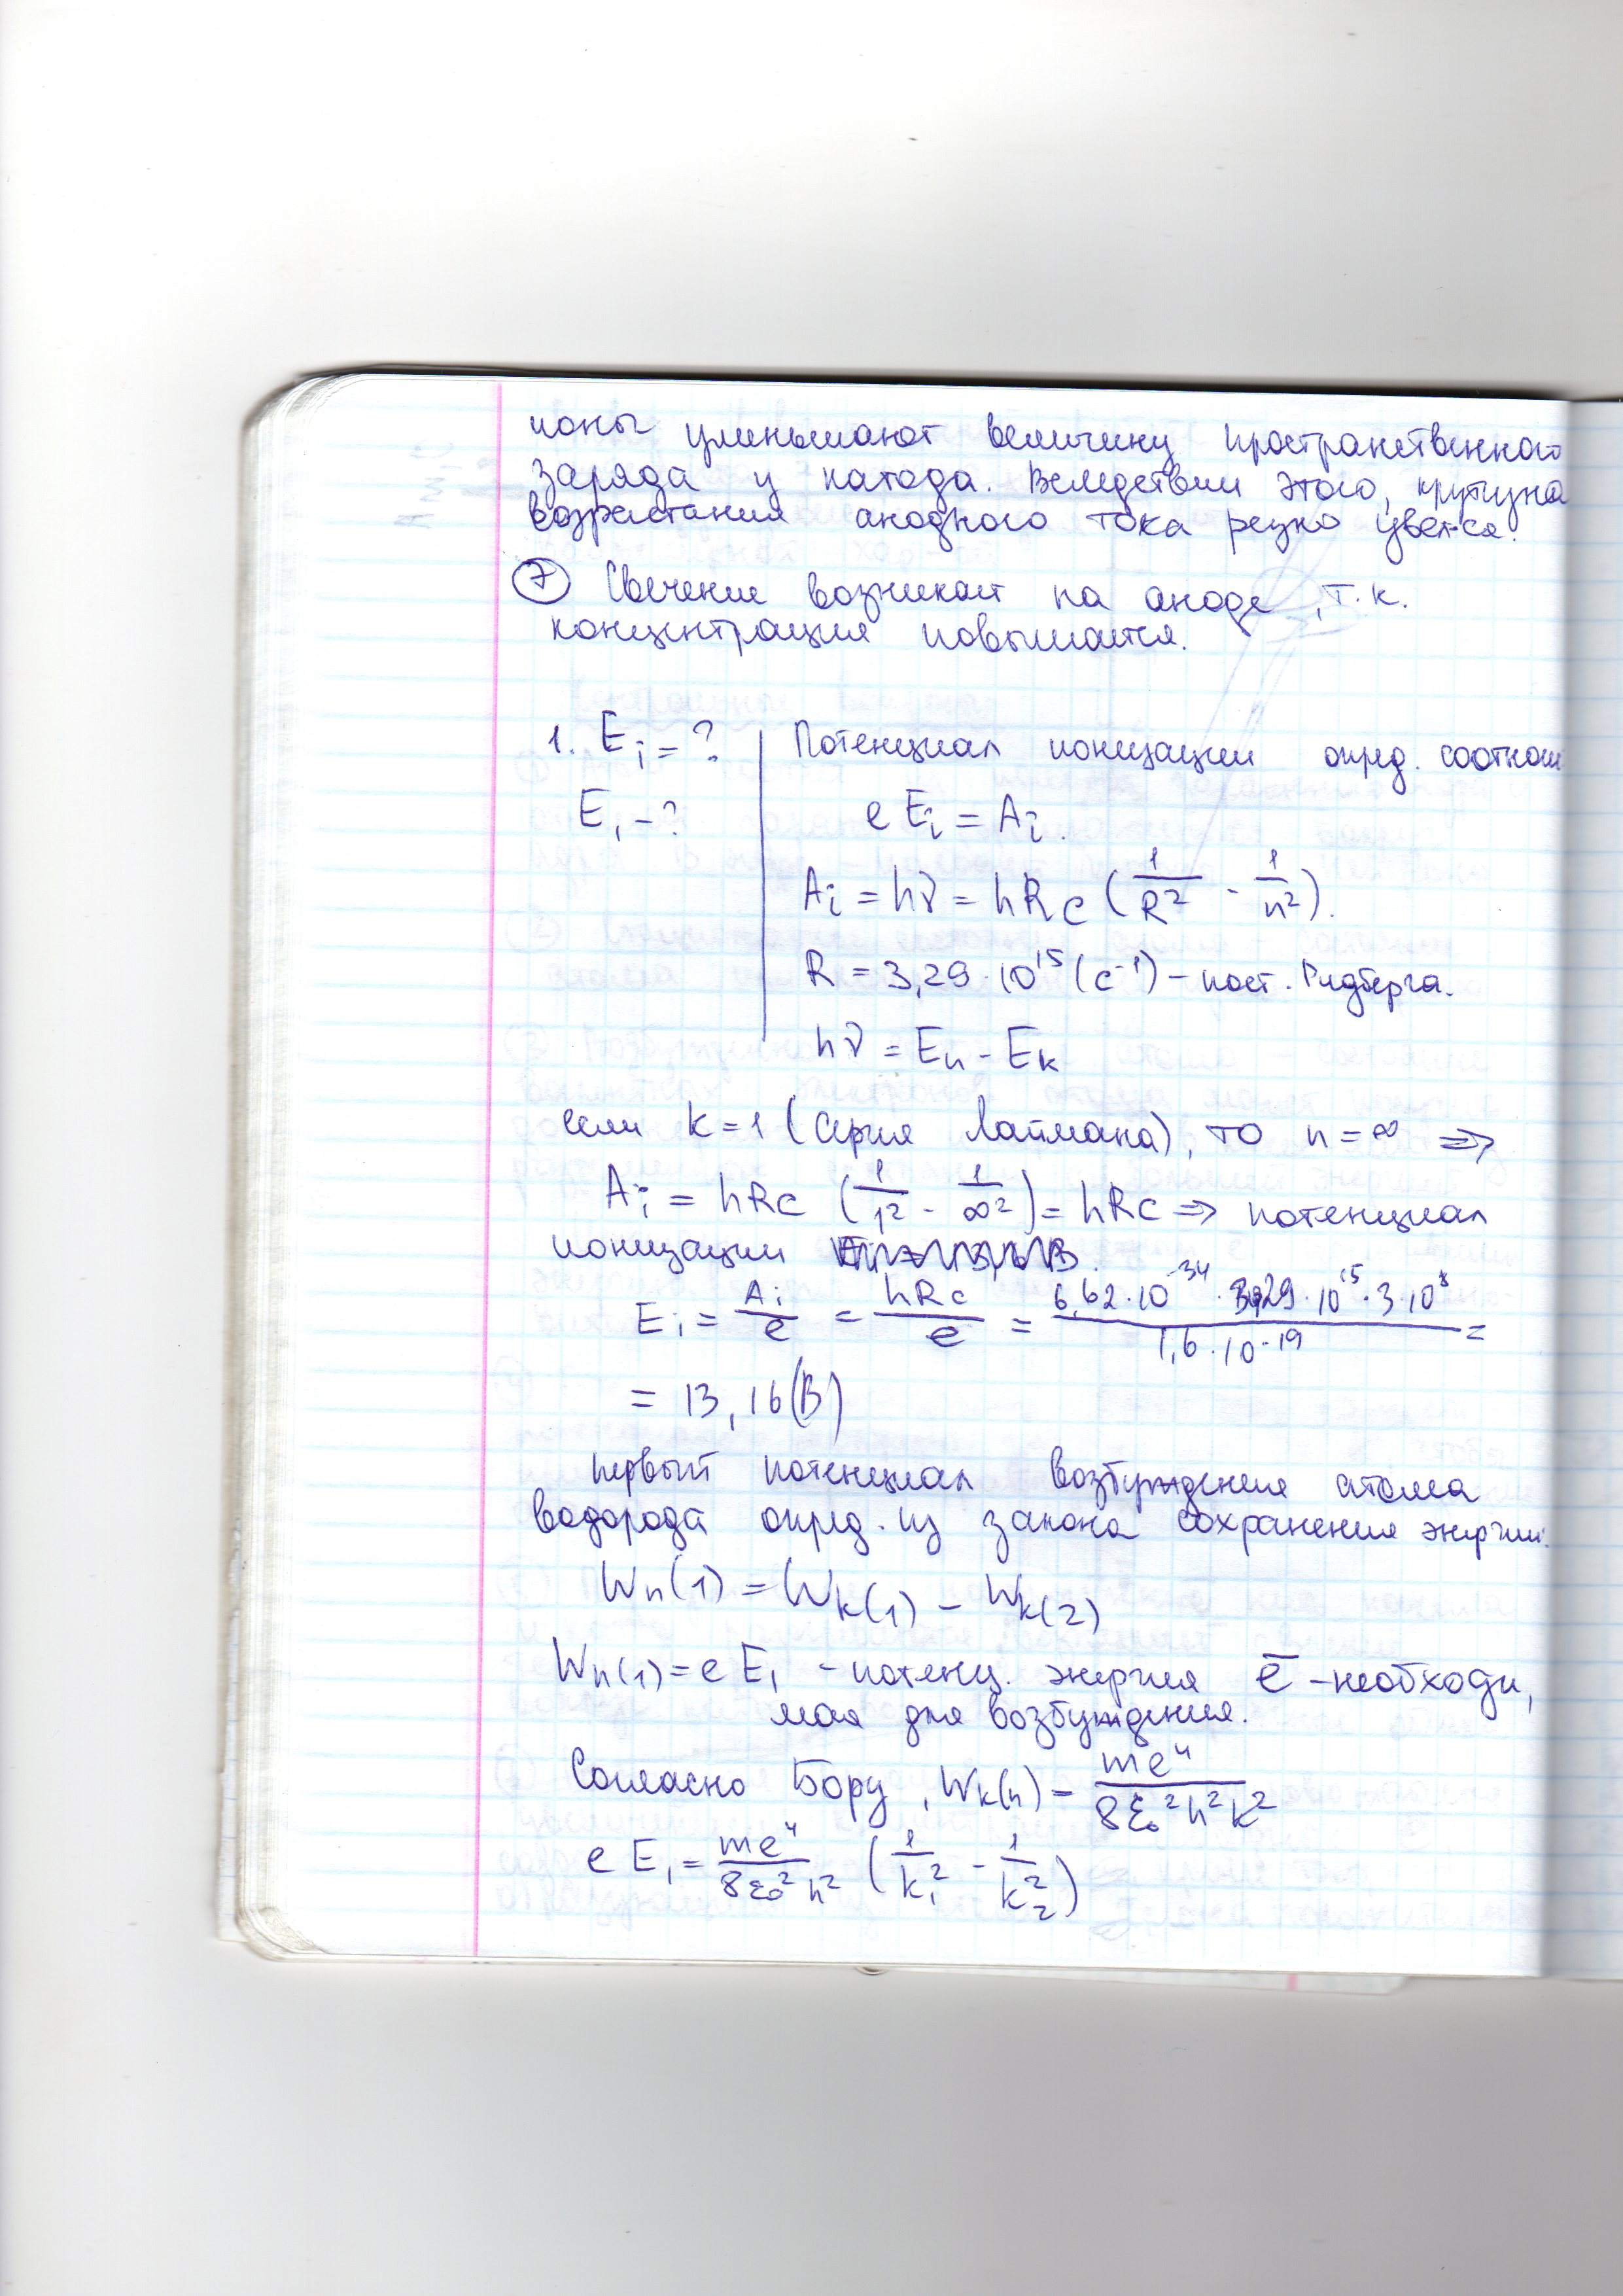 ионы уменьшают величину пространственного
заряда у катода. Вследствии этого, крутизна
возрастания анодного тока резко увел-ся.
⑦ Свечение возникает на аноде, т.к.
концентрация повышается.
1. Ei = ? Потенциал ионизации опред. соотнош
E1 - ? e Ei = Ai.
Ai = hν = hRc (1/R² - 1/n²).
R = 3,29 · 10¹⁵ (с⁻¹) – пост. Ридберга.
hν = En - Ek
если k = 1 (серия Лаймана), то n = ∞ ⇒
Ai = hRc (1/1² - 1/∞²) = hRc ⇒ потенциал
ионизации
Ei = Ai/e = hRc/e = 6,62·10⁻³⁴ · 3,29 · 10¹⁵ · 3 · 10⁸ / 1,6 · 10⁻¹⁹ =
= 13,16 (В)
первый потенциал возбуждения атома
водорода опред. из закона сохранения энергии.
Wn(1) = Wk(1) - Wk(2)
Wn(1) = e E1 - потенц. энергия e̅ - необходи,
мая для возбуждения.
Согласно Бору, Wk(n) = me⁴/8ε₀²h²k²
e E1 = me⁴/8ε₀²h² (1/k₁² - 1/k₂²)